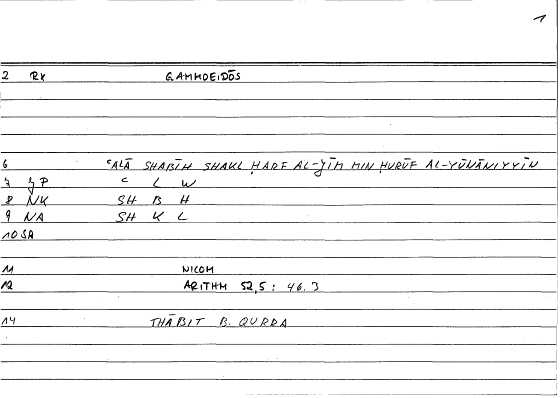 1
2 RK GAMMOEIDŌS
6 ʿALĀ SHABĪH SHAKL ḤARF AL-ǦĪM MIN ḤURŪF AL-YŪNĀNIYYĪN
7 ȜP ʿ L W
8 NK SH B H
9 NA SH K L
10 SA
11 NICOM
12 ARITHM 52,5 : 46.3
14 THĀBIT B. QURRA